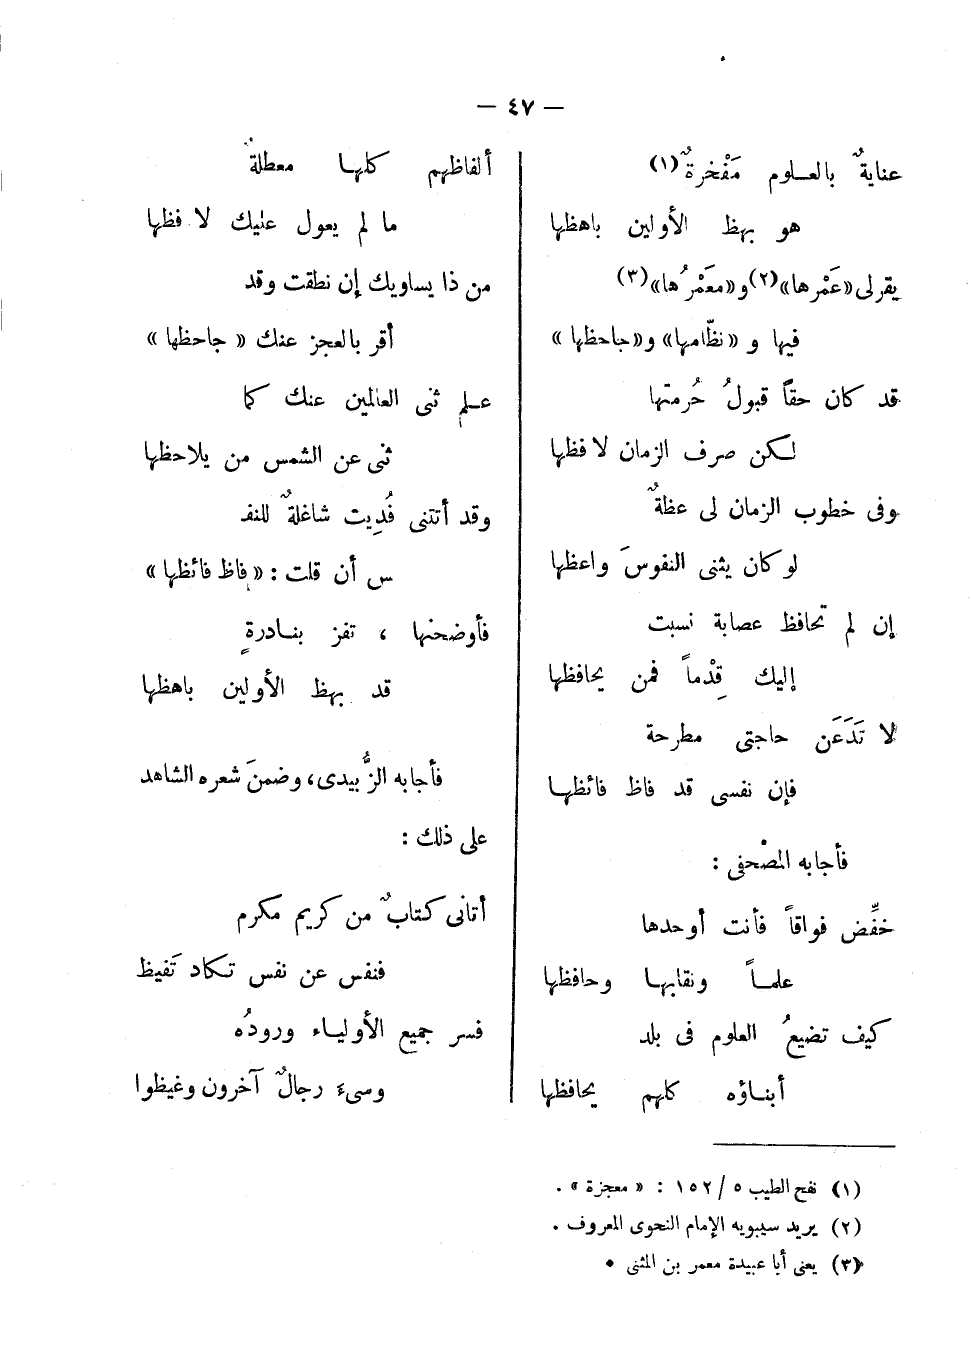 — ٤٧ —
عنايةٌ بالعلوم مَفْخرةٌ (١)
هو بهظ الأولين باهظها
يقر لى «عَمْرها» (٢) و«معَمْرُها» (٣)
فيها و «نظّامها» و«جاحظها»
قد كان حقاً قبولُ حُرمتها
لكن صرف الزمان لافظها
وفى خطوب الزمان لى عظةٌ
لو كان يثنى النفوسَ واعظها
إن لم تحافظ عصابة نسبت
إليك قِدْماً فمن يحافظها
لا تَدَعَن حاجتى مطرحة
فإن نفسى قد فاظ فائظها
فأجابه المصْحفى :
خفِّض فواقاً فأنت أوحدها
علماً ونقابها وحافظها
كيف تضيعُ العلوم فى بلد
أبناؤه كلهم يحافظها
ألفاظهم كلها معطلةٌ
ما لم يعول عليك لافظها
من ذا يساويك إن نطقت وقد
أقر بالعجز عنك « جاحظها »
علم ثنى العالمين عنك كما
ثنى عن الشمس من يلاحظها
وقد أتتنى فُدِيت شاغلةٌ للنفـ
ـس أن قلت : « فاظ فائظها »
فأوضحنها ، تفز بنادرةٍ
قد بهظ الأولين باهظها
فأجابه الزُّبيدى، وضمنَ شعره الشاهد
على ذلك :
أتانى كتابٌ من كريم مكرم
فنفس عن نفس تكاد تَفيظ
فسر جميع الأولياء ورودُه
وسىء رجالٌ آخرون وغيظوا
(١) نفح الطيب ٥ / ١٥٢ : « معجزة » .
(٢) يريد سيبويه الإمام النحوى المعروف .
(٣) يعنى أبا عبيدة معمر بن المثنى .